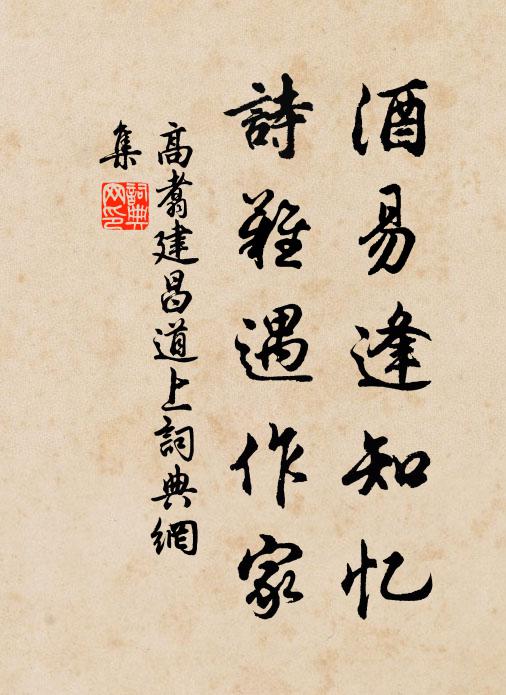 酒易逢知忆
詩難遇作家
高翥建昌道上詞典網
集
詞典網印